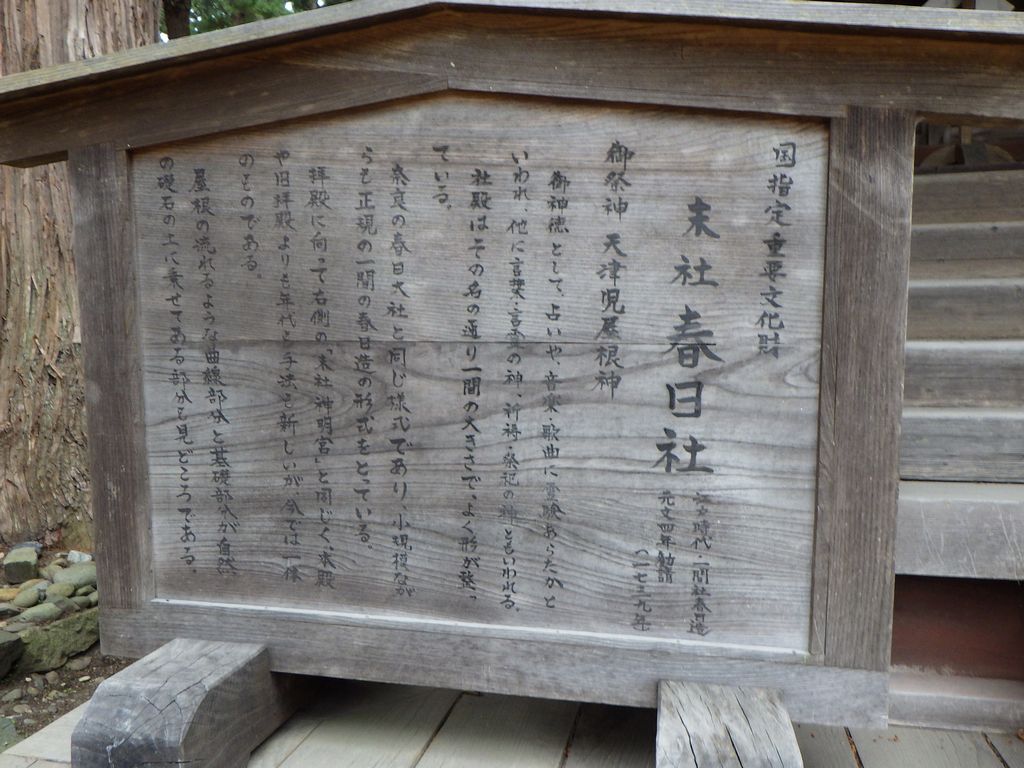 国指定重要文化財
末社 春日社
江戸時代 一間社春日造
元文四年勧請
(一七三九年
御祭神 天津児屋根神
御神徳として、占いや、音楽・歌曲に霊験あらたかと
いわれ、他に言葉・言霊の神、祈祷・祭祀の神ともいわれる。
社殿はその名の通り一間の大きさで、よく形が整っ
ている。
奈良の春日大社と同じ様式であり、小規模なが
らも正規の一間の春日造の形式をとっている。
拝殿に向って右側の「末社神明宮」と同じく、本殿
や旧拝殿よりも年代と手法も新しいが、今では一様
のものである。
屋根の流れるような曲線部分と基礎部分が自然
の礎石の上に乗せてある部分も見どころである。